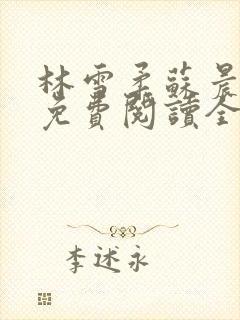 林雪柔蘇晨
免費閱讀全
李述永